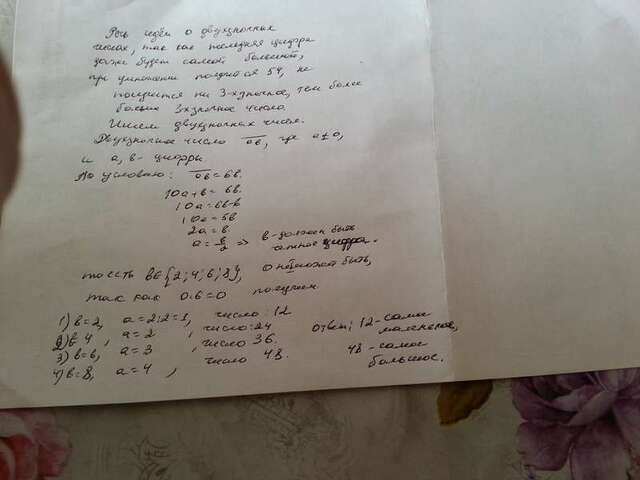 Речь идёт о двухзначных
числах, так как последняя цифра
даже будет самой большой,
при умножении получится 54, не
получится ни 3-хзначное, тем более
больше 3хзначное число.
Ищем двухзначные числа.
Двухзначное число ав, где а≠0,
и а, в- цифры.
По условию: ав = 6в.
10а+в = 6в.
10а=6в-в
10а=5в
2а=в
а=в/2 => в-должен быть
чётное цифра.
то есть в∈{2;4;6;8}, 0 не может быть,
так как 0·6=0 получаем
1) в=2, а=2:2=1, число: 12
2) в=4, а=2, число: 24
3) в=6, а=3, число 36.
4) в=8, а=4, число 48.
ответ: 12-самое
маленькое,
48-самое
большое.